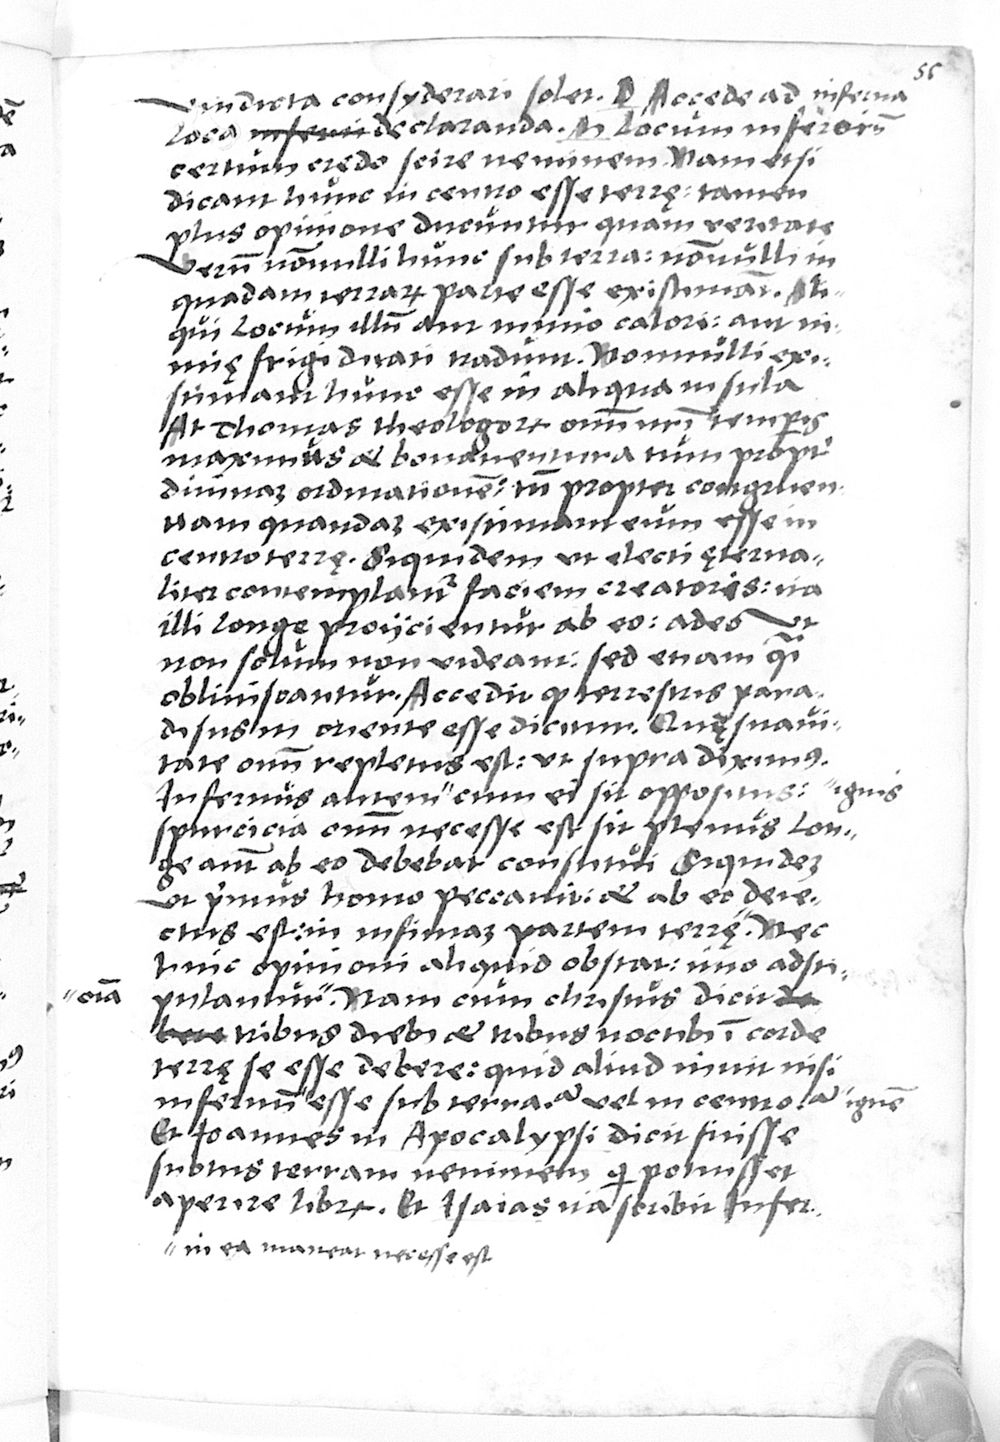 56
vindicta consyderari solet. D Accede ad inferna
loca inferni declaranda. A Locum inferorū
certum credo scire neminem. Nam etsi
dicant hunc in centro esse terrę: tamen
plus opinione ducuntur quam veritate
Verū nōnulli hunc sub terra: nōnulli in
quadam terraꝝ parte esse existimāt. Ali-
qui locum illū aut nimio calori: aut ni-
mię frigiditati tradunt. Nonnulli exi-
stimant hunc esse in aliqua insula
At Thomas theologoꝝ omniū nr̄i temporis
maximus & bonaventura tum propt̄
divinaꝫ ordinationē: tū propter congruen
tiam quandaꝫ existimant eum esse in
centro terrę. Siquidem ut electi ęterna-
liter contemplant̄ faciem creatoris: ita
illi longę proijcientur ab eo: adeo ut
non solum non videant: sed etiam q̄si
obliviscantur. Accedit ꝙ terrestris para-
disus in oriente esse dicitur. Quę suavi-
tate omī repletus est: ut supra diximꝰ.
Infernus autem " cum ei sit oppositus: " ignis
spurcicia omī necesse est sit plenus Lon-
ge aūt ab eo debebat constitui Siquideꝫ
ut p̄mus homo peccavit: & ab eo deie-
ctus est: in infimaꝫ partem terrę". Nec
huic opinioni aliquid obstat: imo adsti-
" oīa pulantur". Nam cum christus dicit de
bere tribus diebꝫ & tribus noctibꝫ ī corde
terrę se esse debere: quid aliud innuit nisi
infernū " esse sub terra & vel in centro & " ignē
Et Joannes in Apocalypsi dicit fuisse
subtus terram neminem q̄ potuisset
aperire libꝝ. Et Isaias ita scribit Infer-
" in ea maneat necesse est